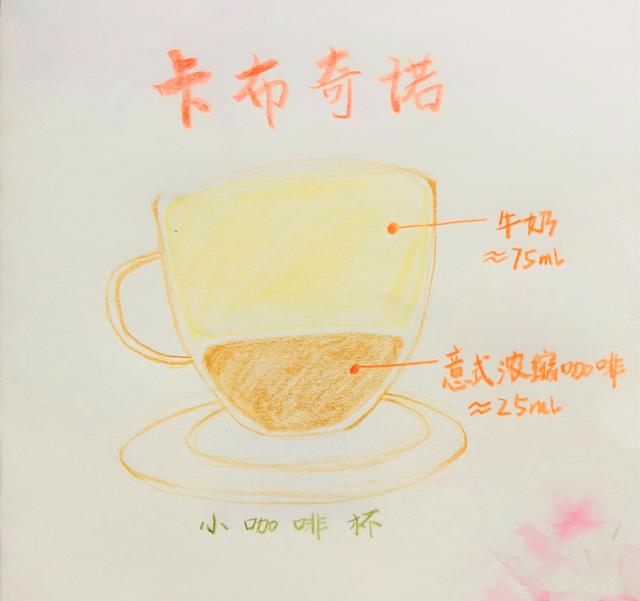 卡布奇诺
牛奶
≈75ml
意式浓缩咖啡
≈25ml
小咖啡杯